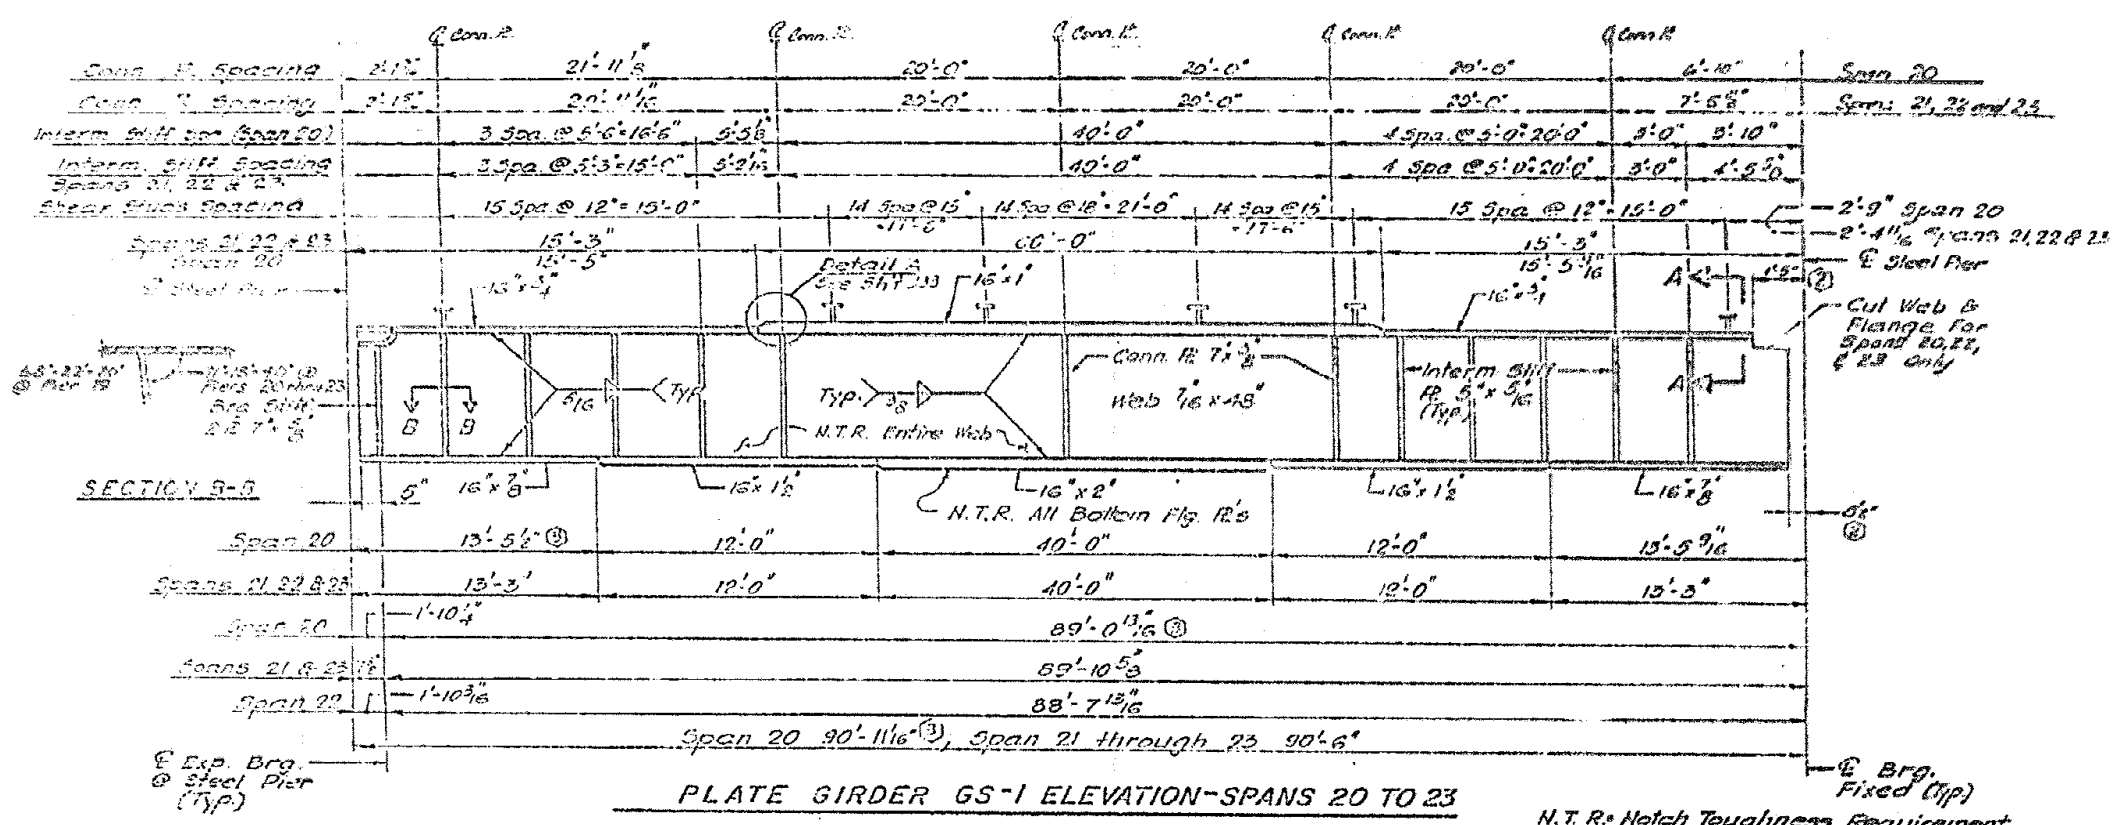 ℄ Conn. ℙ ℄ Conn. ℙ ℄ Conn. ℙ ℄ Conn. ℙ ℄ Conn. ℙ
Conn. ℙ Spacing 21'-11 20'-0" 20'-0" 20'-0" 6'-10" Span 20
Conn. ℙ Spacing 20'-11 20'-0" 20'-0" 20'-0" 7'-5 Spans 21, 22 and 23
Interm. Stiff (Span 20) 3 Spa. @ 5'-6"=16'-6" 40'-0" 4 Spa. @ 5'-0"=20'-0" 3'-0" 3'-10"
Interm. Stiff Spacing 3 Spa. @ 5'-3"=15'-0" 40'-0" 4 Spa. @ 5'-0"=20'-0" 3'-0"
Spans 21, 22 & 23
Shear Studs Spacing 15 Spa. @ 12" = 15'-0" 14 Spa @ 15" 14 Spa @ 18" = 21'-0" 14 Spa @ 15" 15 Spa @ 12" = 15'-0" 2'-9" Span 20
= 17'-6" = 17'-6" Spans 21, 22 & 23
Spans 21, 22 & 23 15'-3" 60'-0" 15'-3"
Span 20 15'-5" 15'-5
℄ Steel Pier ℄ Steel Pier
Detail A
See Sht
16" x 3/4" 16" x 1" 16" x 3/4" A 1'-5" ②
Cut Web &
Flange For
Spans 20, 22,
& 23 Only
@ Pier 19
Brg Stiff.
5/16 Typ Typ. 3/8
Conn. ℙ 7" x
Web 7/16" x 48"
Interm Stiff
ℙ 5" x 5/16"
(Typ.)
A
B B
N.T.R. Entire Web
SECTION B-B
5" 16" x 7/8" 16" x 1 1/2" 16" x 2" 16" x 1 1/2" 16" x 7/8"
N.T.R. All Bottom Flg. ℙ's
Span 20 13'-5 1/2" ③ 12'-0" 40'-0" 12'-0" 13'-5 9/16
Spans 21, 22 & 23 13'-3" 12'-0" 40'-0" 12'-0" 13'-3"
Span 20 1'-10 1/4" 89'-0 13/16" ③
Spans 21 & 23 89'-10 5/8"
Span 22 1'-10 3/16" 88'-7 13/16"
Span 20 90'-11 ③, Span 21 through 23 90'-6"
℄ Exp. Brg.
@ Steel Pier
(Typ.)
℄ Brg.
Fixed (Typ)
PLATE GIRDER GS-1 ELEVATION-SPANS 20 TO 23
N.T.R: Notch Toughness Requirement